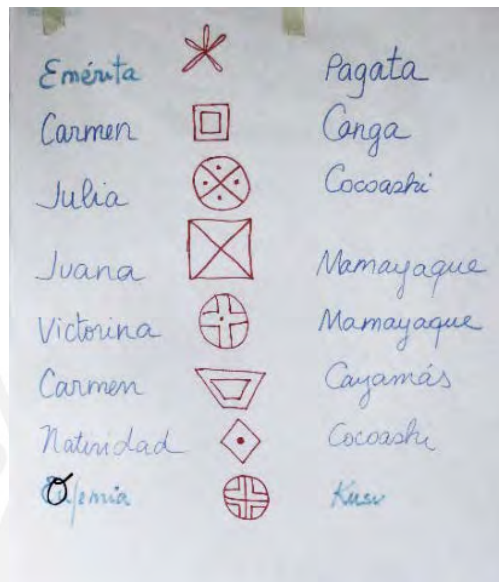 Emérita Pagata
Carmen Canga
Julia Cocoashi
Juana Mamayaque
Victorina Mamayaque
Carmen Cayamás
Natividad Cocoashi
Kusu